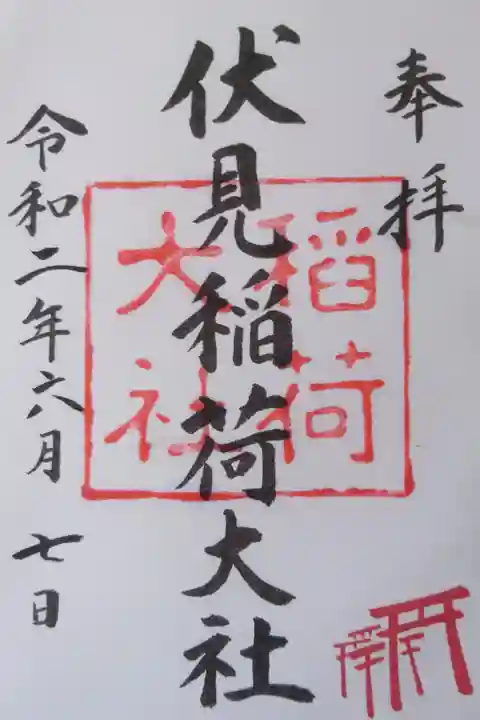 奉拝
伏見稲荷大社
稲荷
大社
令和二年六月 七日